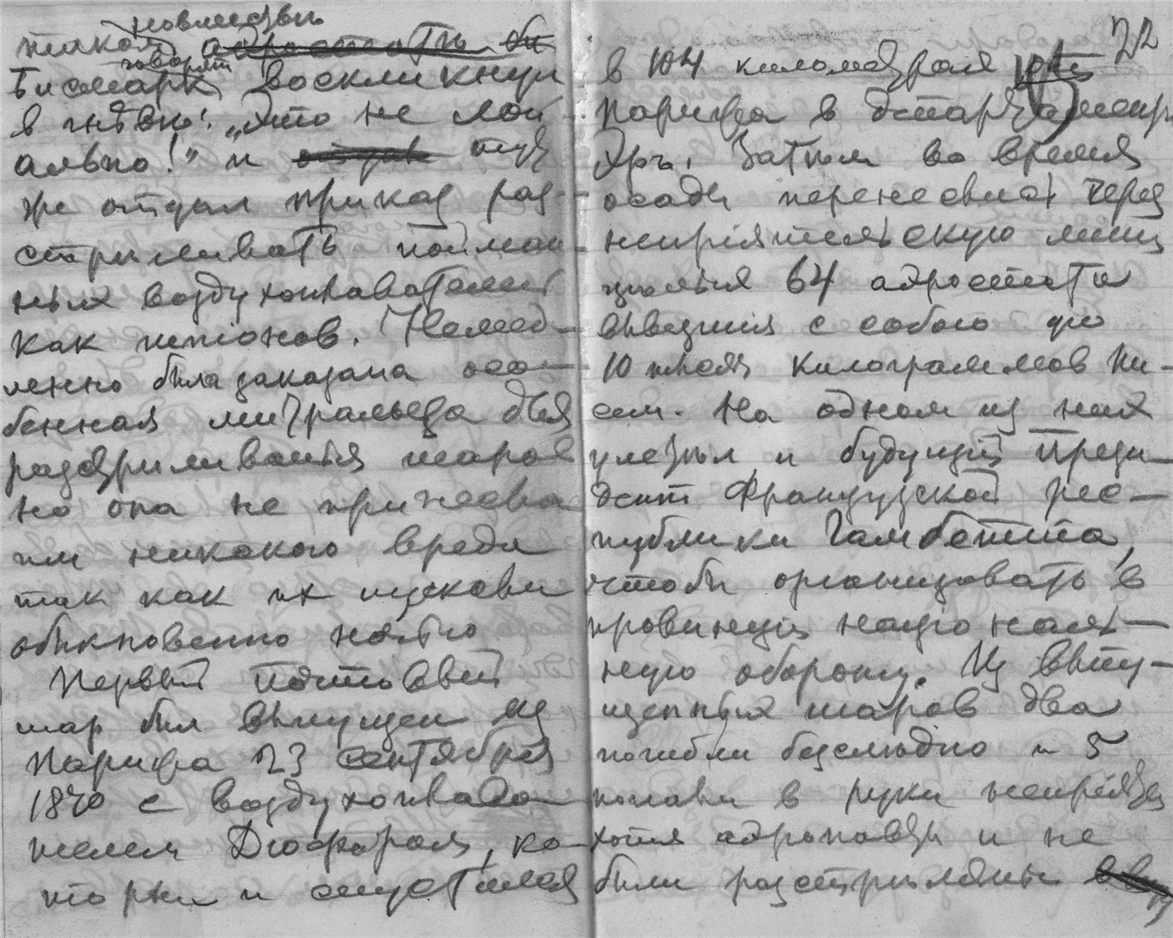 новшества
такой аэростаты бы
говорят
Бисмарк воскликнул
в гневе: „Это не лой-
ально!" и тут
же отдал приказ раз-
стреливать пойман-
ных воздухоплавателей
как шпионов. Немед-
ленно была заказана осо-
бенная митральеза для
разстреливанья шаров
но она не принесла
им никакого вреда
так как их пускали
обыкновенно ночью
Первый почтовый
шар был выпущен из
Парижа 23 сентября
1870 с воздухоплава-
телем Дюфором, ко-
торый и спустился
22
в 104 километрах от
Парижа в департаменте
Эръ. Затем во время
осады перенеслись через
непріятельскую линію
целых 64 аэростата
вывезшия с собою до
10 тысяч килограммов пи-
сем. На одном из них
улетел и будущій Прези-
дент Французской рес-
публики Гамбетта,
чтобы организовать в
провинціи національ-
ную оборону. Из выпу-
щенных шаров два
погибли безследно и 5
попали в руки непріятеля
хотя аэронавты и не
были разстреляны